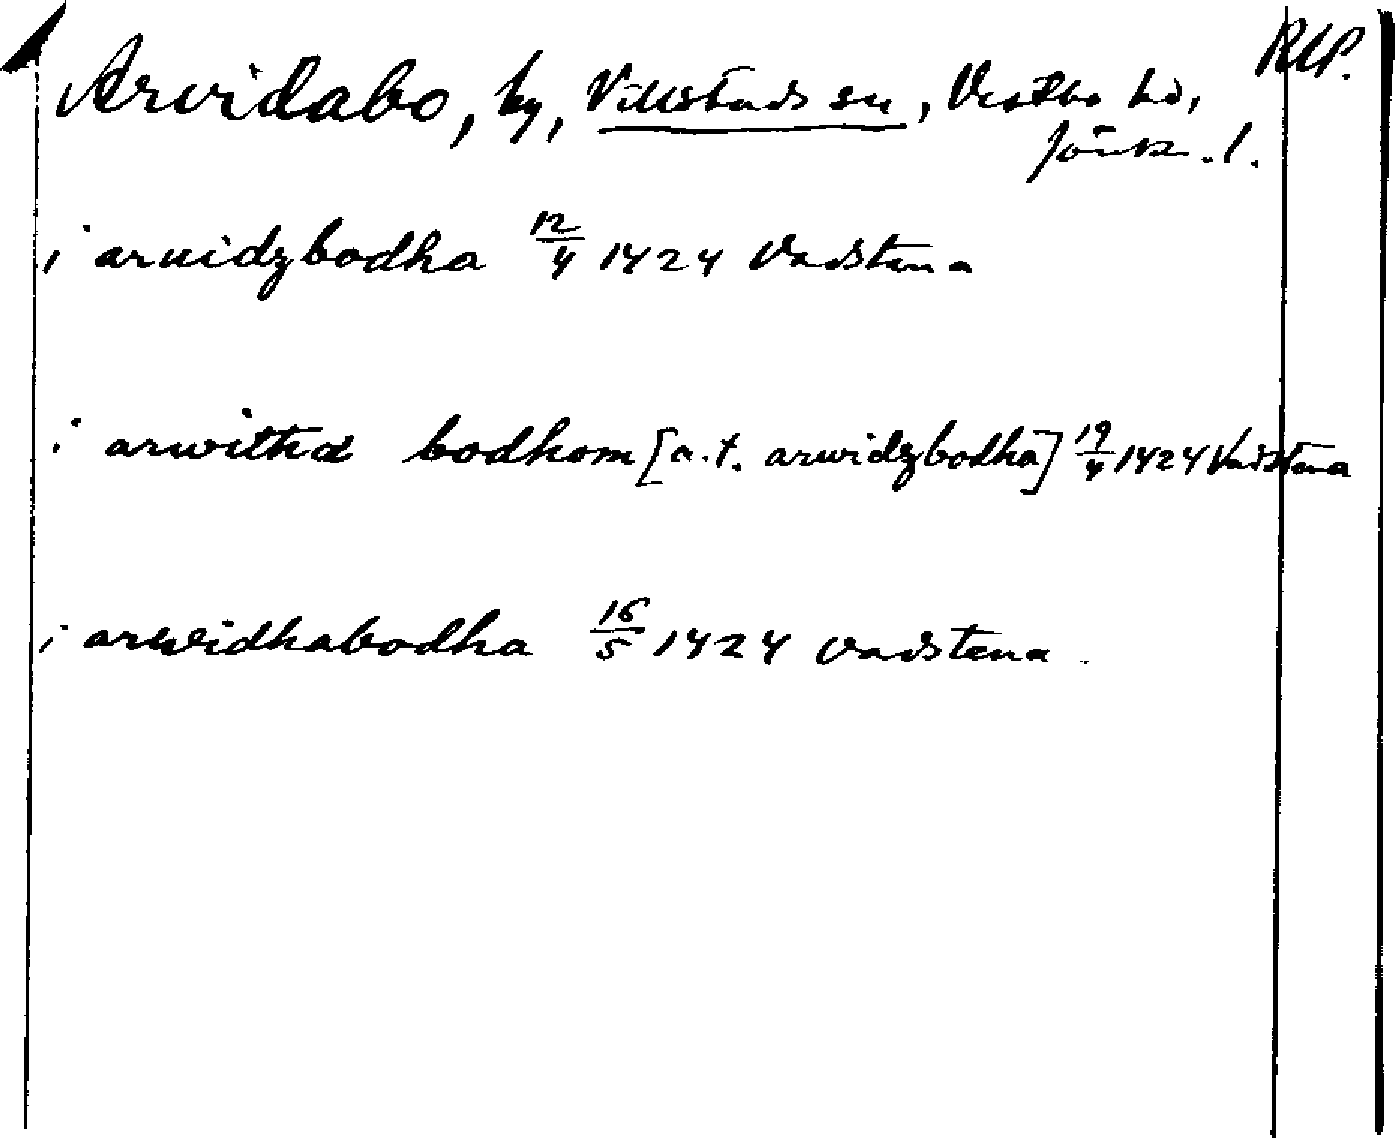 RAP.
Arvidabo, by, Villstads sn, Västbo hd,
Jönk. l.
i aruidzbodha 12/4 1424 Vadstena
i arwitha bodhom [a.t. arwidzbodha] 19/4 1424 Vadstena
i arwidhabodha 16/5 1424 Vadstena.